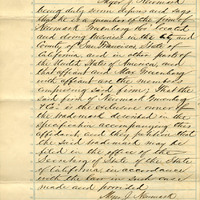 Myer J. Newmark
being duly sworn deposes and says
that he is a member of the firm of
Newmark Grunenberg & Co. located
and doing business in the City and
County of San Francisco, State of
California, and in other parts of
the United States of America; and
that affiant and Max Grunenberg
are the members
composing said firm; That the
said firm of Newmark Grunenberg
& Co. is the exclusive owner of
the trademark described in the
specification accompanying this
affidavit and they petition that
the said trademark may be
filed in the office of the
Secretary of State of the State
of California in accordance
with the law in such case
made and provided
Myer J. Newmark